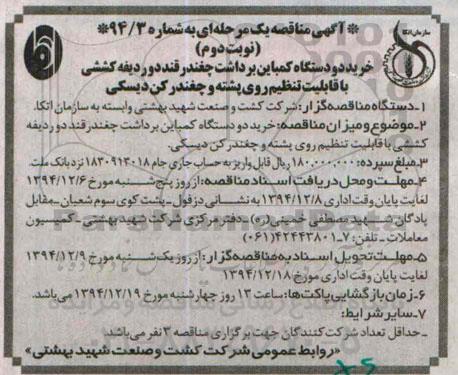 سازمان اتکا
*آگهی مناقصه یک مرحله ای به شماره ۹۴/۳*
(نوبت دوم)
خرید دو دستگاه کمباین برداشت چغندر قند دو ردیفه کششی
با قابلیت تنظیم روی پشته و چغندر کن دیسکی
۱-دستگاه مناقصه گزار: شرکت کشت و صنعت شهید بهشتی وابسته به سازمان اتکا.
۲-موضوع و میزان مناقصه: خرید دو دستگاه کمباین برداشت چغندر قند دو ردیفه
کششی با قابلیت تنظیم روی پشته و چغندر کن دیسکی.
۳-مبلغ سپرده: ۱۸۰.۰۰۰.۰۰۰ ریال قابل واریز به حساب جاری جام ۱۸۳۰۹۱۳۰۱۸ نزد بانک ملت.
۴-مهلت و محل دریافت اسناد مناقصه: از روز پنج شنبه مورخ ۱۳۹۴/۱۲/۶
لغایت پایان وقت اداری ۱۳۹۴/۱۲/۸ به نشانی دزفول-پشت کوی سوم شعبان-مقابل
پادگان شهید مصطفی خمینی(ره)-دفتر مرکزی شرکت شهید بهشتی-کمیسیون
معاملات-تلفن: ۷-۴۲۴۴۳۸۰۱(۰۶۱)
۵-مهلت تحویل اسناد به مناقصه گزار: از روز یک شنبه مورخ ۱۳۹۴/۱۲/۹
لغایت پایان وقت اداری مورخ ۱۳۹۴/۱۲/۱۸
۶-زمان بازگشایی پاکت ها: ساعت ۱۳ روز چهارشنبه مورخ ۱۳۹۴/۱۲/۱۹ می باشد.
۷-سایر شرایط:
-حداقل تعداد شرکت کنندگان جهت برگزاری مناقصه ۳ نفر می باشد.
«روابط عمومی شرکت کشت و صنعت شهید بهشتی»